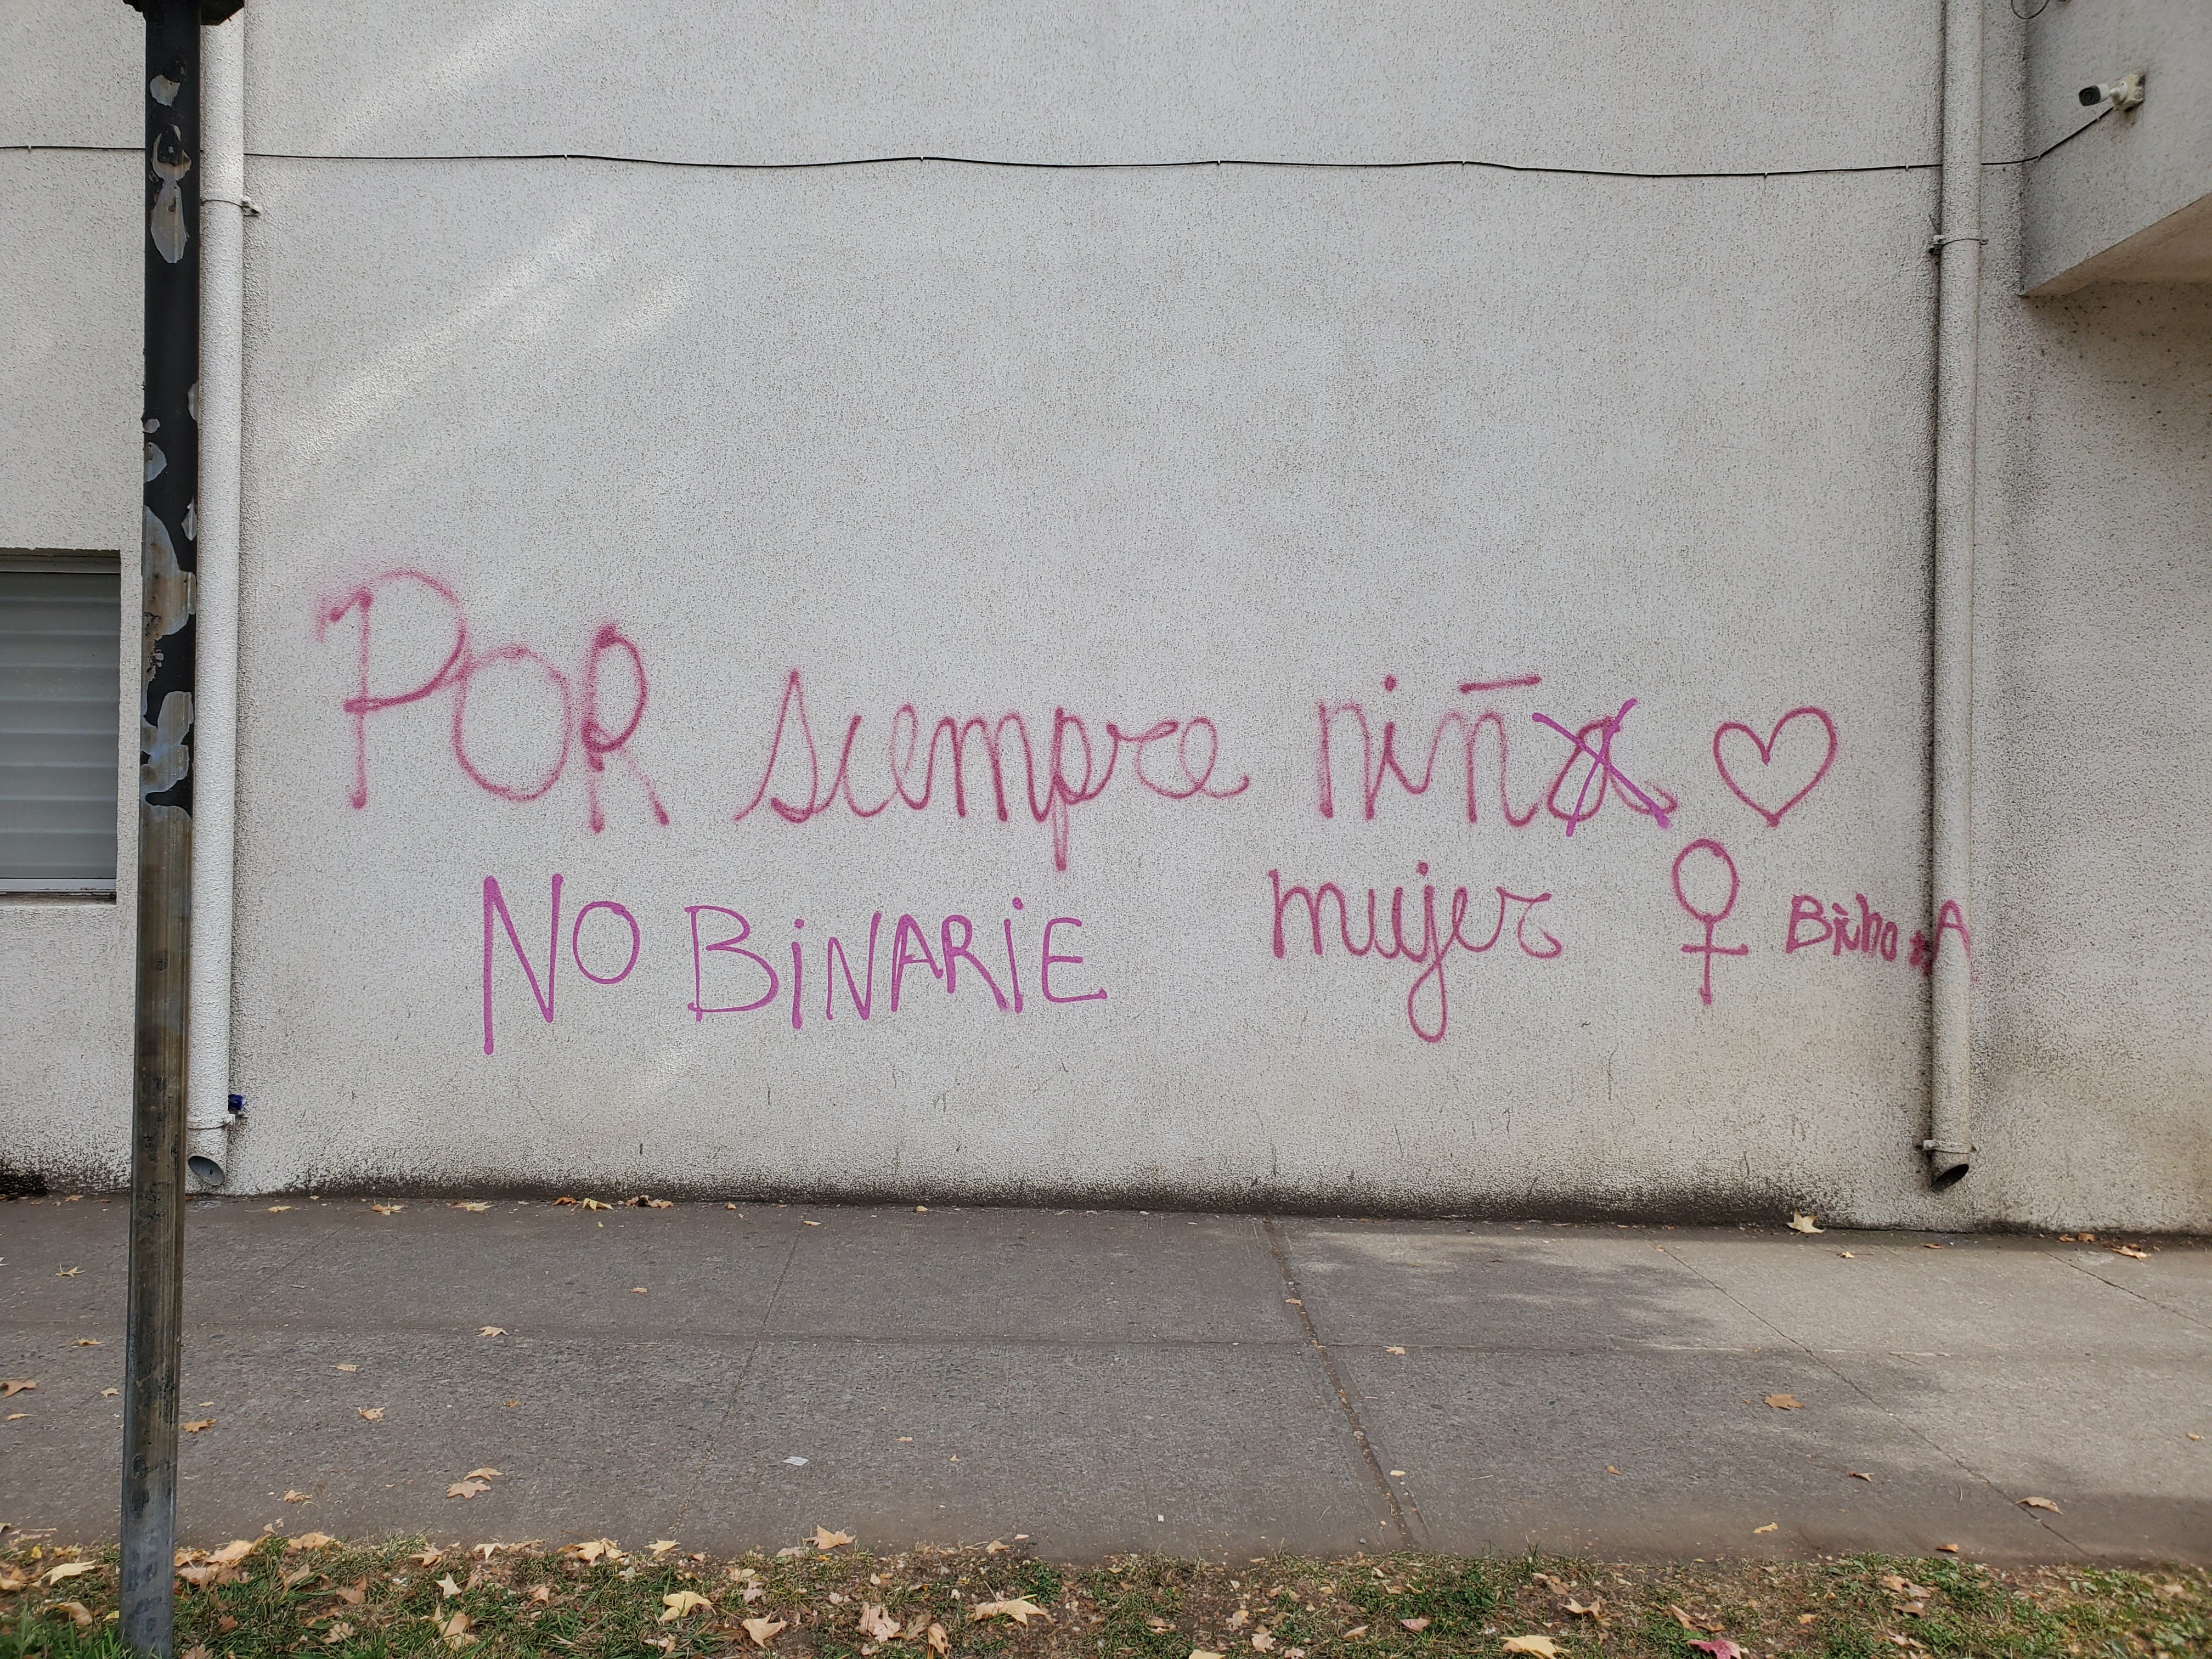 POR siempre niña
NO BiNARiE mujer